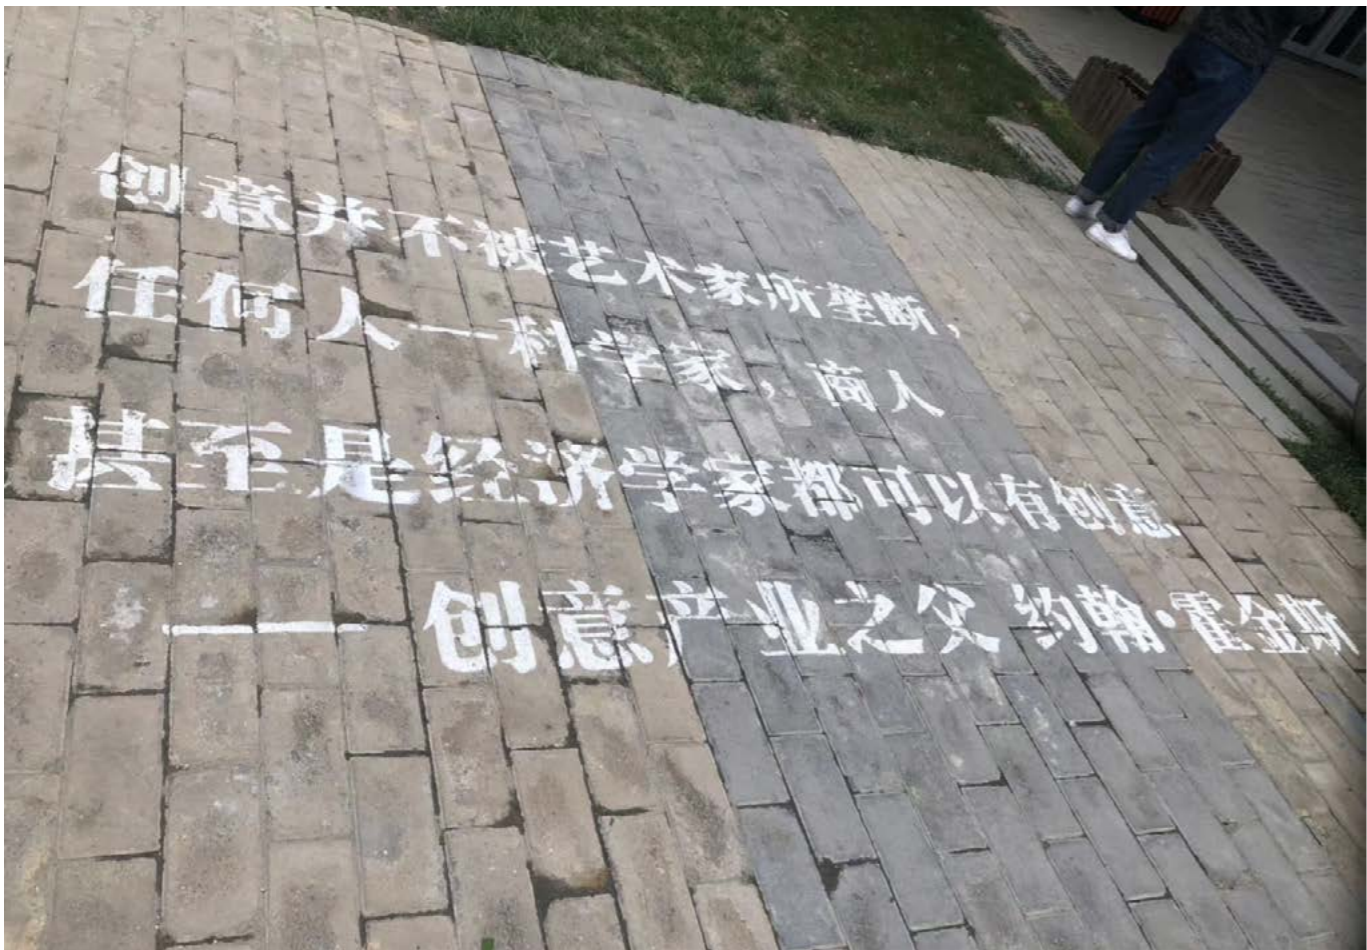 创意并不被艺术家所垄断，
任何人一科学家，商人
甚至是经济学家都可以有创意
—— 创意产业之父 约翰·霍金斯